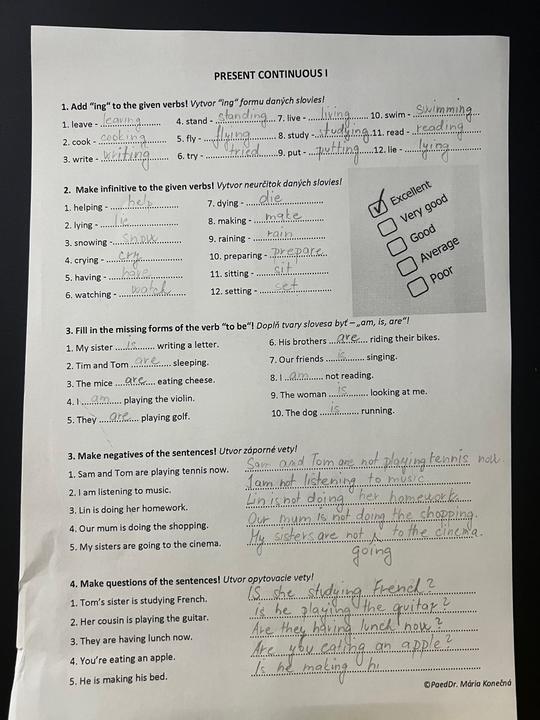 PRESENT CONTINUOUS I
1. Add "ing" to the given verbs! Vytvor "ing" formu daných slovies!
1. leave - leaving 4. stand - standing 7. live - living 10. swim - swimming
2. cook - cooking 5. fly - flying 8. study - studying 11. read - reading
3. write - writing 6. try - tried 9. put - putting 12. lie - lying
2. Make infinitive to the given verbs! Vytvor neurčitok daných slovies!
1. helping - help 7. dying - die
2. lying - lie 8. making - make
3. snowing - snow 9. raining - rain
4. crying - cry 10. preparing - prepare
5. having - have 11. sitting - sit
6. watching - watch 12. setting - set
Excellent
Very good
Good
Average
Poor
3. Fill in the missing forms of the verb "to be"! Doplň tvary slovesa byť – „am, is, are"!
1. My sister is writing a letter. 6. His brothers are riding their bikes.
2. Tim and Tom are sleeping. 7. Our friends is singing.
3. The mice are eating cheese. 8. I am not reading.
4. I am playing the violin. 9. The woman is looking at me.
5. They are playing golf. 10. The dog is running.
3. Make negatives of the sentences! Utvor záporné vety!
1. Sam and Tom are playing tennis now. Sam and Tom are not playing tennis now.
2. I am listening to music. I am not listening to music
3. Lin is doing her homework. Lin is not doing her homework.
4. Our mum is doing the shopping. Our mum is not doing the shopping.
5. My sisters are going to the cinema. My sisters are not to the cinema.
going
4. Make questions of the sentences! Utvor opytovacie vety!
1. Tom's sister is studying French. IS she studying French?
2. Her cousin is playing the guitar. Is he playing the guitar?
3. They are having lunch now. Are they having lunch now?
4. You're eating an apple. Are you eating an apple?
5. He is making his bed. Is he making hi
©PaedDr. Mária Konečná